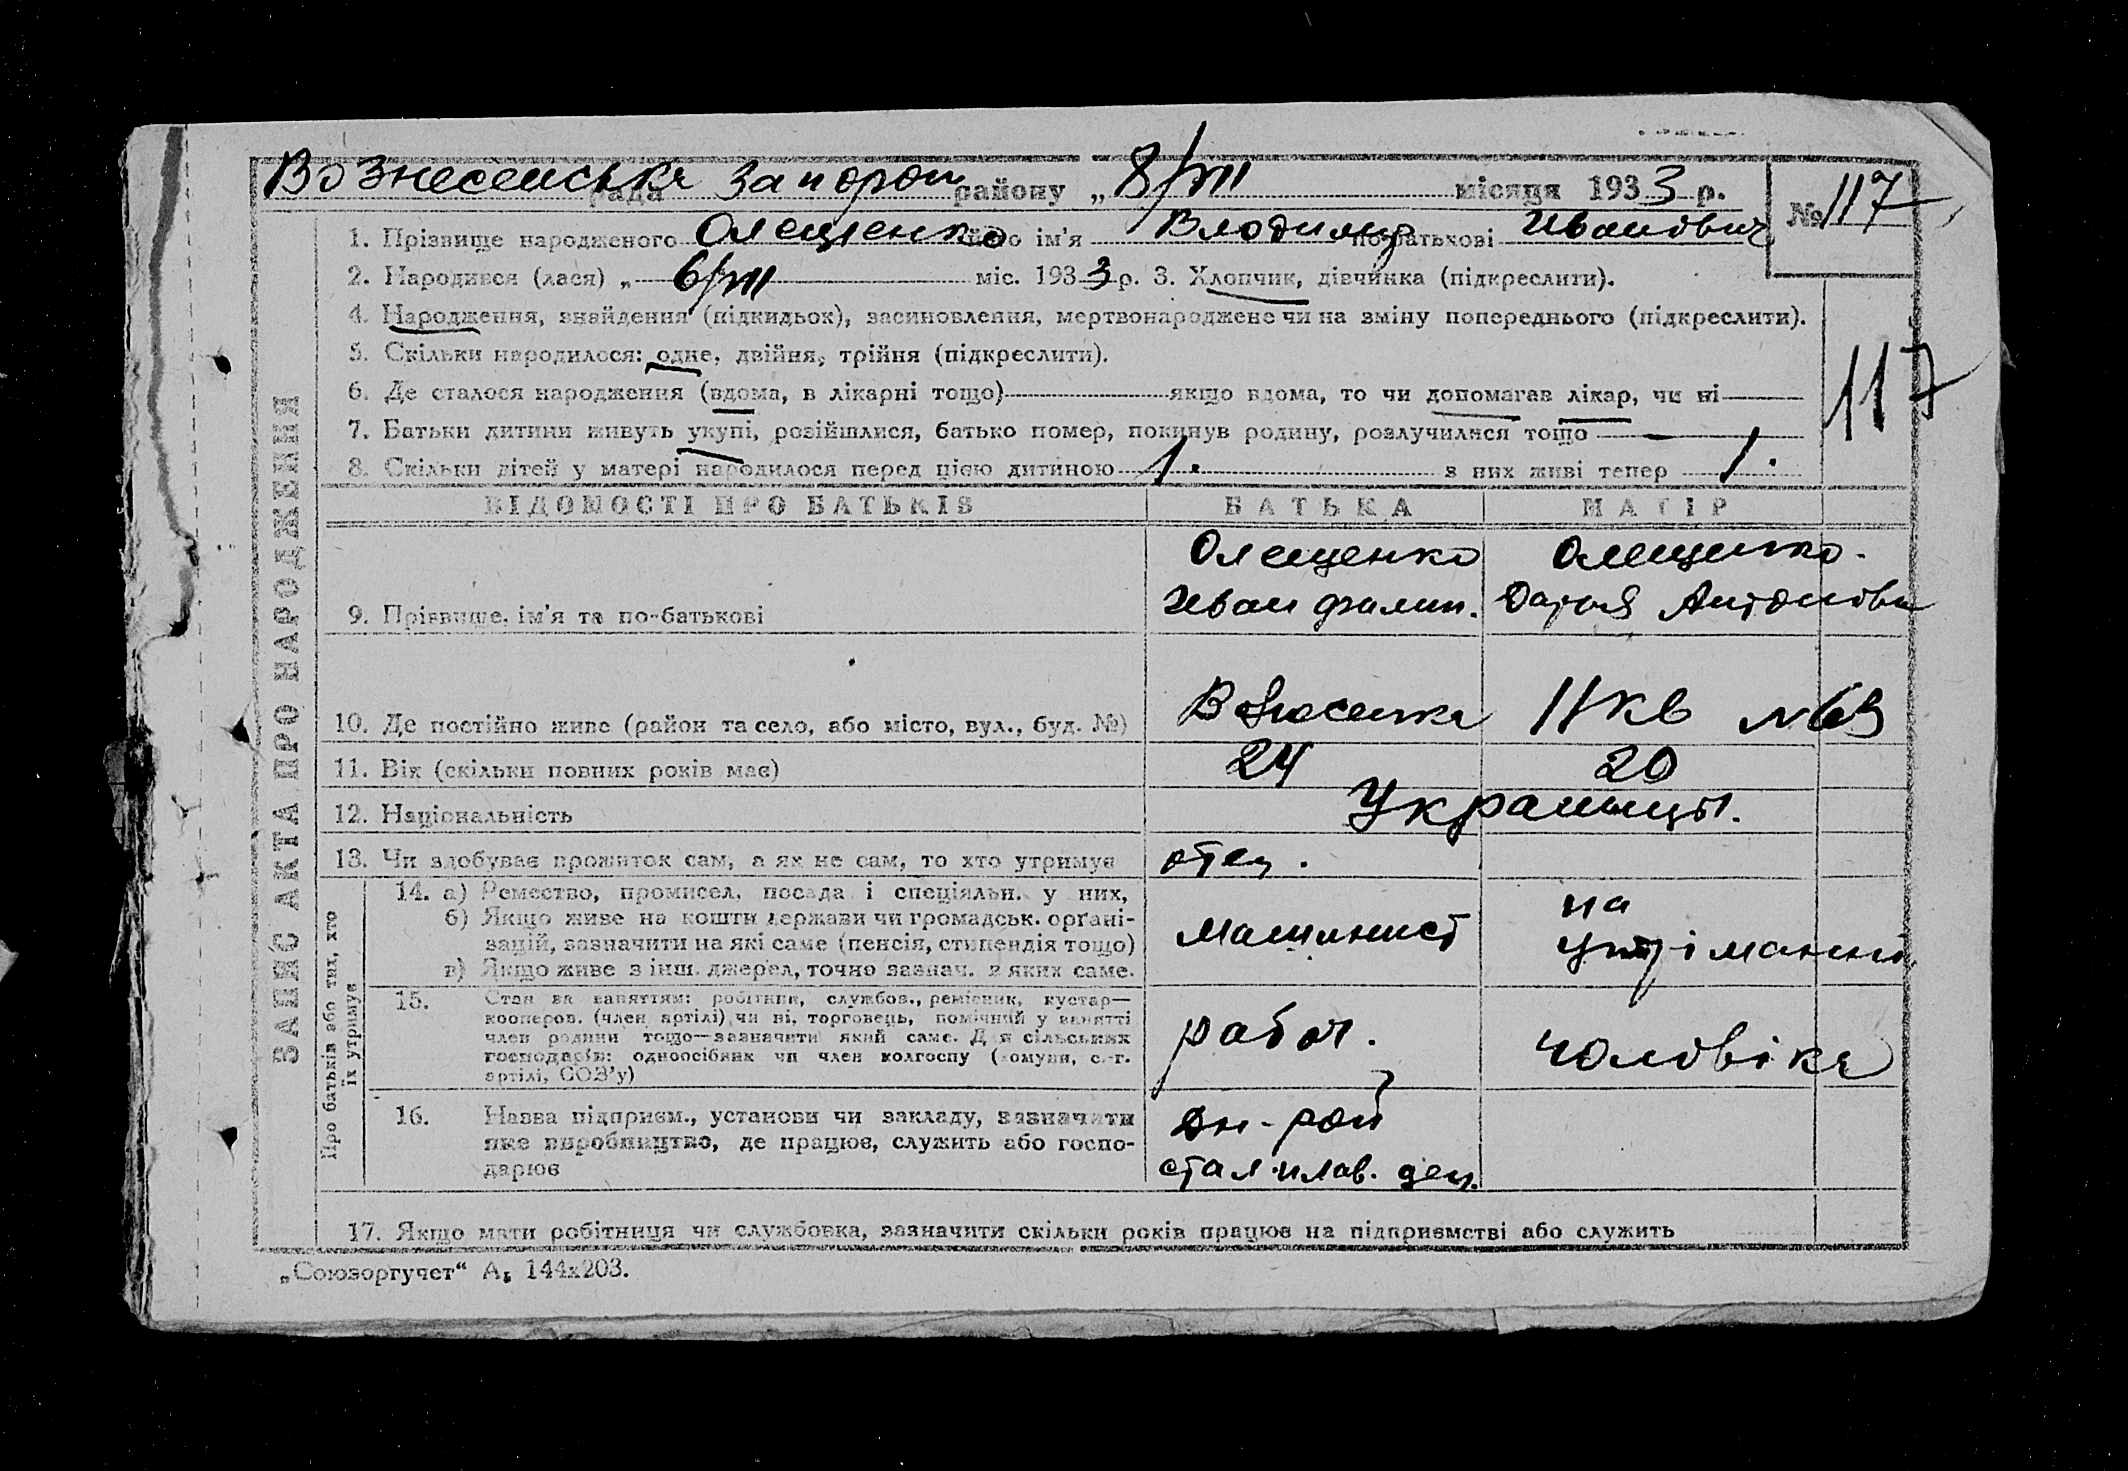 Вознесенська рада Запороз району „ 8/VIII місяця 1933 р. № 117
1. Прізвище народженого Олещенко його ім'я Влодимир по батькові Иванович
2. Народився (лася) „ 6/VIII міс. 1933 р. 3. Хлопчик, дівчинка (підкреслити).
4. Народження, знайдення (підкидьок), засиновлення, мертвонароджене чи на зміну попереднього (підкреслити).
5. Скільки народилося: одне, двійня, трійня (підкреслити).
117
6. Де сталося народження (вдома, в лікарні тощо) якщо вдома, то чи допомагав лікар, чи ні
7. Батьки дитини живуть укупі, розійшлися, батько помер, покинув родину, розлучилися тощо —
8. Скільки дітей у матері народилося перед цією дитиною 1. з них живі тепер 1.
ЗАПИС АКТА ПРО НАРОДЖЕННЯ
ВІДОМОСТІ ПРО БАТЬКІВ БАТЬКА МАТІР
Олещенко Олещенко.
9. Прізвище, ім'я та по-батькові Иван Филип. Дарья Антоновн
10. Де постійно живе (район та село, або місто, вул., буд. №) Вознесенка 11 кв №69
11. Вік (скільки повних років має) 24 20
12. Національність Украинцы.
13. Чи здобуває прожиток сам, а як не сам, то хто утримує отец.
Про батьків або тих, хто їх утримує
14. а) Ремество, промисел, посада і спеціяльн. у них,
б) Якщо живе на кошти держави чи громадськ. орґані-
зацій, зазначити на які саме (пенсія, стипендія тощо)
в) Якщо живе з інш. джерел, точно зазнач. з яких саме.
машинист на
утріманні
15. Стан за заняттям: робітник, службов., ремісник, кустар—
кооперов. (член артілі) чи ні, торговець, помічний у занятті
член родини тощо—зазначити який саме. Для сільських
господарів: одноосібник чи член колгоспу (комуни, с.-г.
артілі, СОЗ'у)
работ. чоловіка
16. Назва підприєм., установи чи закладу, зазначити
яке виробництво, де працює, служить або госпо-
дарює
стал.плав. цех.
17. Якщо мати робітниця чи службовка, зазначити скільки років працює на підприємстві або служить
„Союзоргучет“ А₅ 144х203.